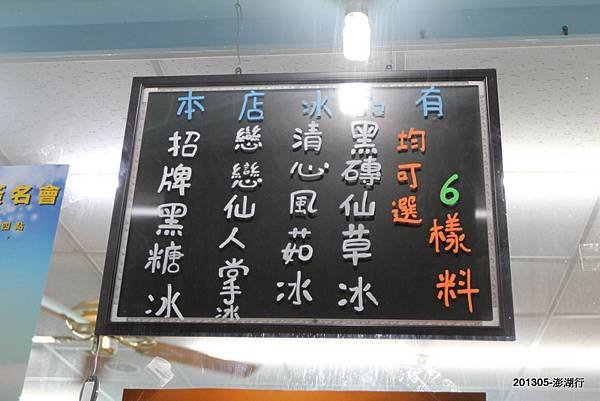 本店冰品有
招牌黑糖冰
戀戀仙人掌冰
清心風茹冰
黑磚仙草冰
均可選
6樣料
簽名會
四點
201305-澎湖行